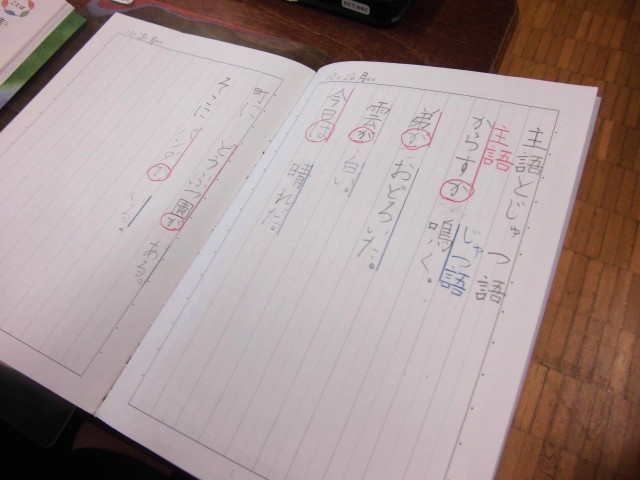 主語とじゅつ語
主語 じゅつ語
からすが 鳴く。
弟が おどろいた。
雲が 白い。
今日は 晴れだ。
町に どうぶつ園が ある。
そこに パンダが いる。